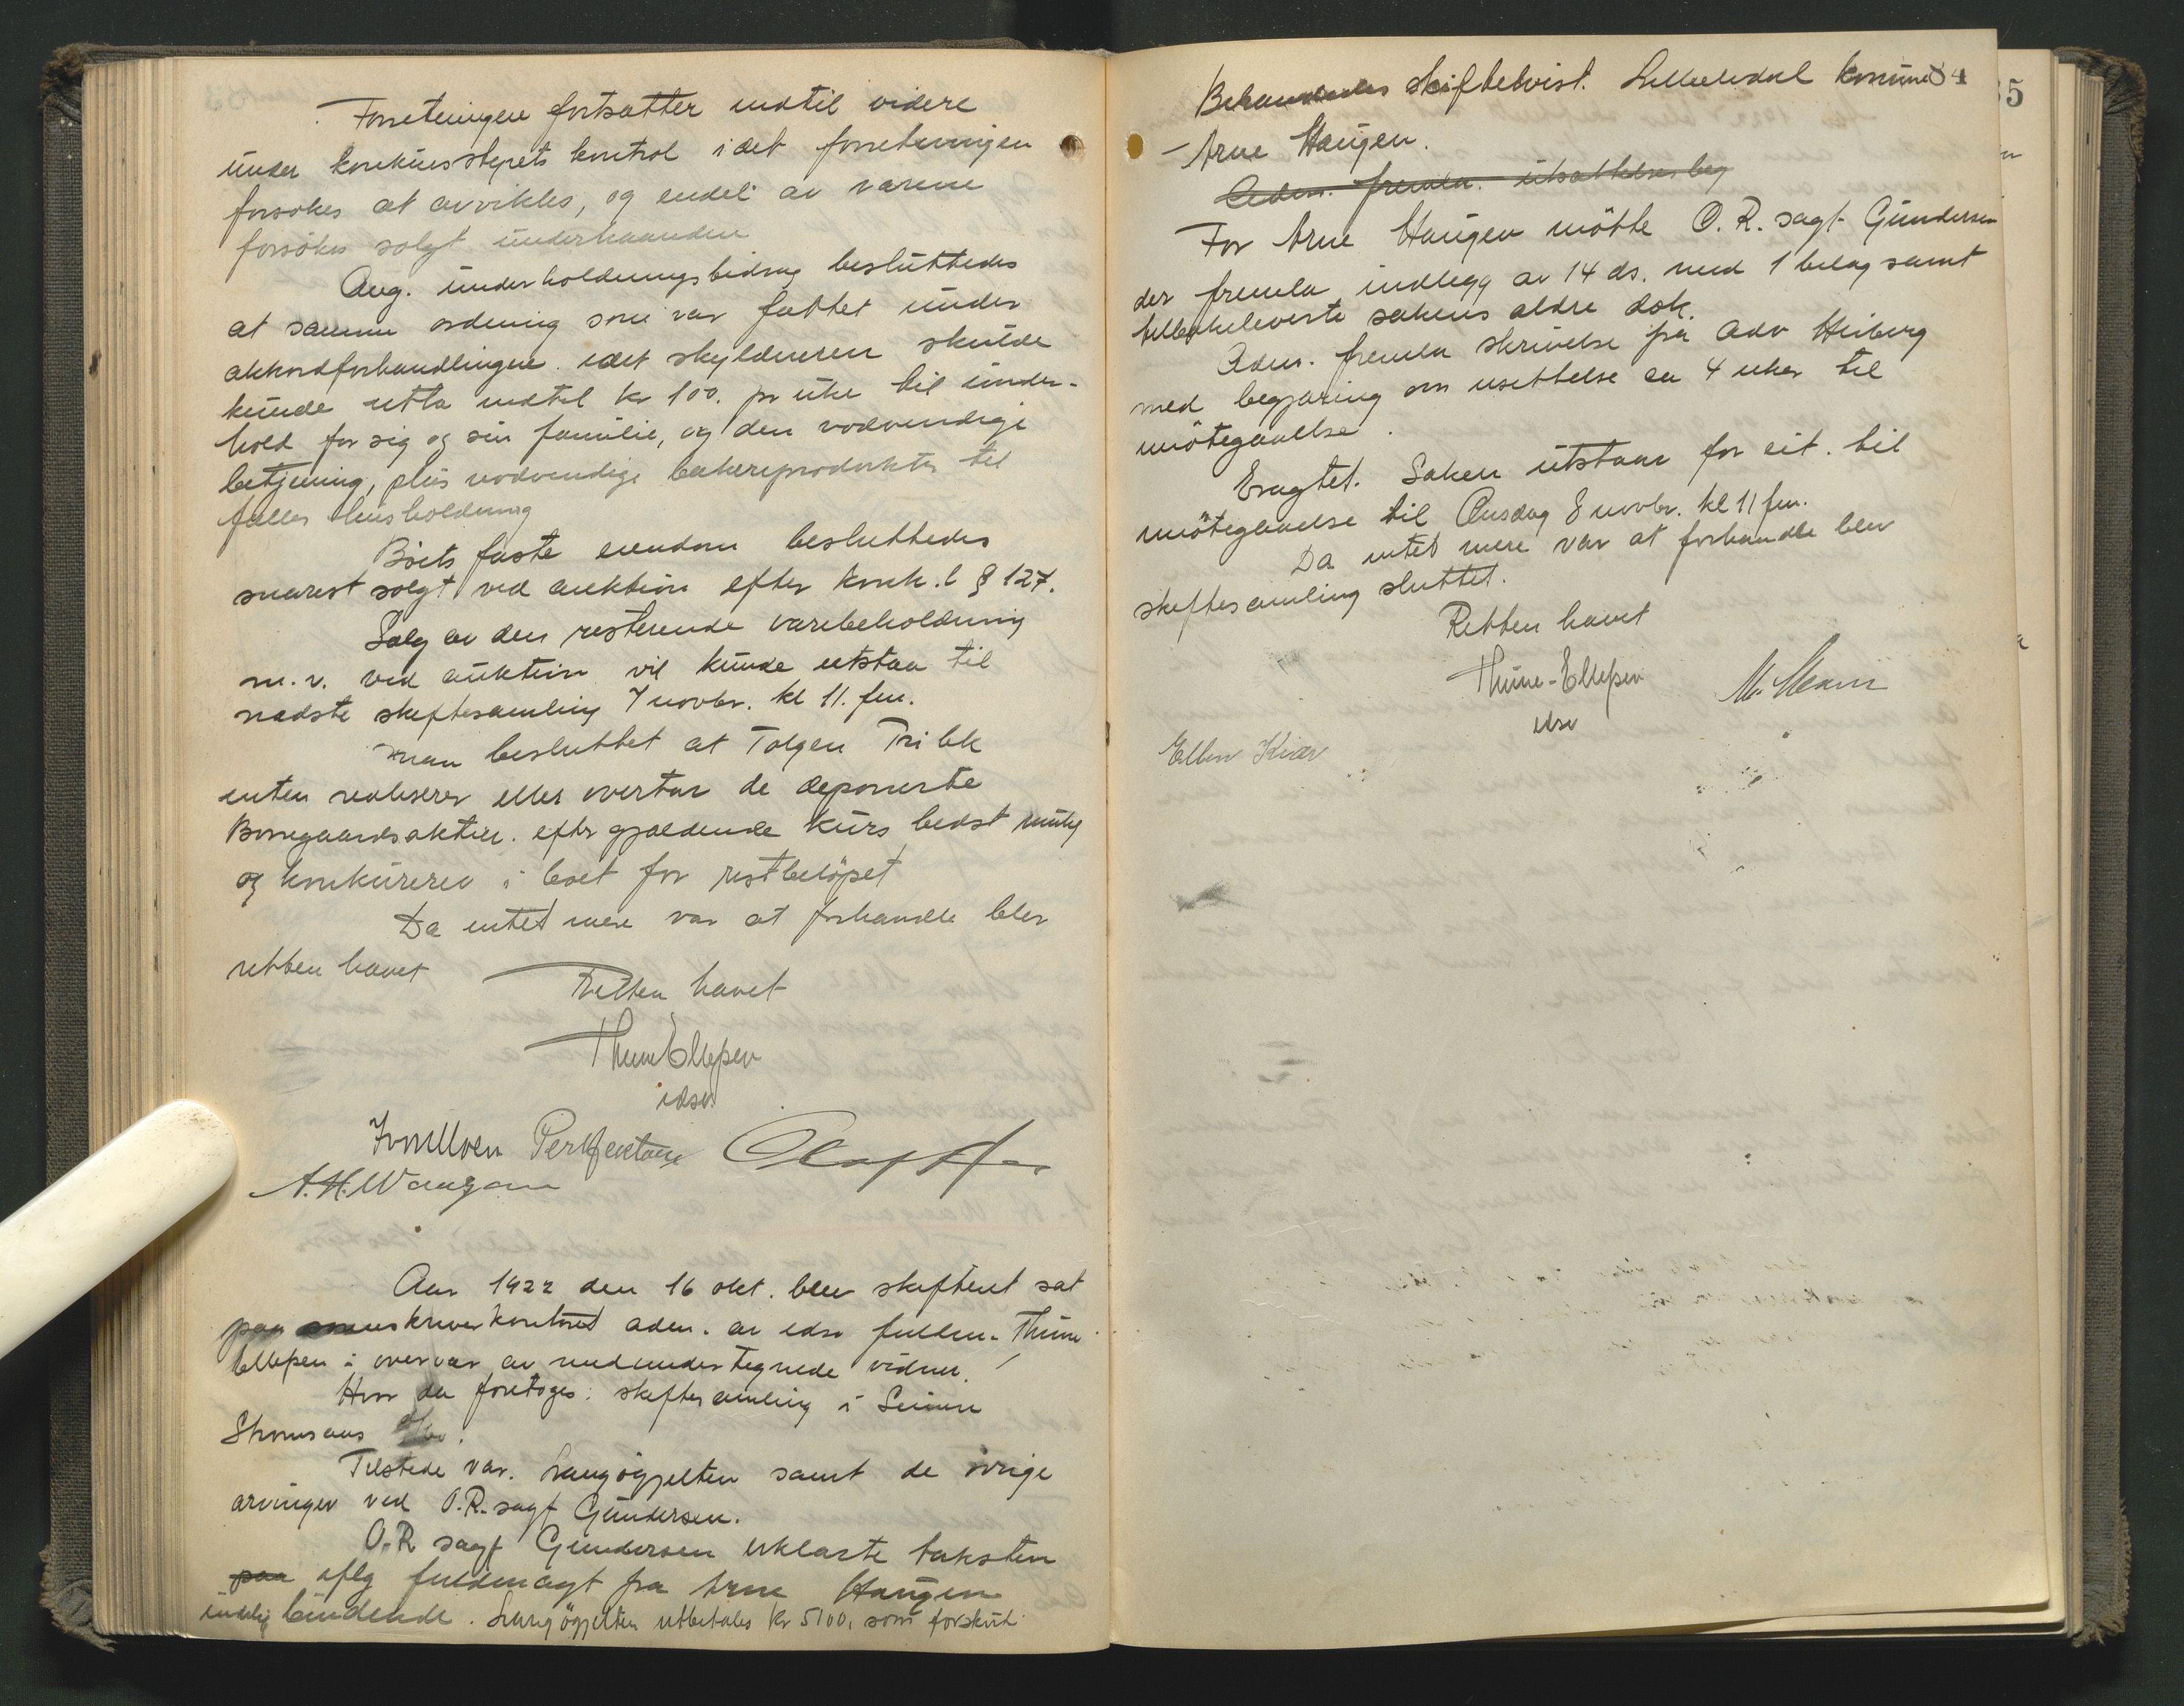 Forretningen fortsætter indtil videre
under konkursstyrets kontrol idet forretningen
forsøkes at avvikles, og endel av varene
forsøkes solgt underhaanden
Ang. underholdningsbidrag besluttedes
at samme ordning som var fattet under
akkordforhandlingene idet skyldneren skulde
kunde utta indtil kr 100. pr uke til under-
hold for sig og sin familie, og den nødvendige
betjening, plus nødvendige bakeriprodukter til
fælles husholdning
Boets faste eiendom besluttedes
snarest solgt ved auktion efter konk.l § 127.
Salg av den resterende varebeholdning
m.v. ved auktion vil kunde utstaa til
næste skiftesamling 7 novbr. kl 11. fm.
man besluttet at Tolgen Pri bk
enten realiserer eller overtar de deponerte
Borregaardsaktier. efter gjældende kurs bedst mulig
og konkurerer i boet for restbeløpet
Da intet mere var at forhandle blev
retten hævet
Retten hævet
Thune Ellefsen
idsv
A.H. Wangen
Aar 1922 den 16 okt. blev skifteret sat
paa kontoret adm. av edsv fuldm. Thune
Ellefsen i overvær av medundertegnede vidner.
Hvor da foretoges: skiftesamling i
Tilstede var. Laugøgjelten samt de øvrige
arvinger ved O.R.sagf Gundersen.
O.R sagf Gundersen erklærte taksten
paa iflg fuldmagt fra Arne Haugen
endelig bindende. Laugøgjelten utbetales kr 5100, som forskud.
84
35
Behandledes skiftetvist. Lilleelvdal komune
- Arne Haugen.
Adm. fremla. utsættelses beg
For Arne Haugen møtte O.R.sagf Gundersen
der fremla indlegg av 14 ds. med 1 bilag samt
tilbakeleverte sakens ældre dok.
Adm. fremla skrivelse fra Adv Heiberg
med begjæring om usettelse ca 4 uker til
imøtegaaelse.
Eragtet. Saken utstaar for eit. til
imøtegaaelse til Onsdag 8 novbr. kl 11 fm.
Da intet mere var at forhandle blev
skiftesamling sluttet.
Retten hævet
Thune-Ellefsen
idsv
Ellen Kiær